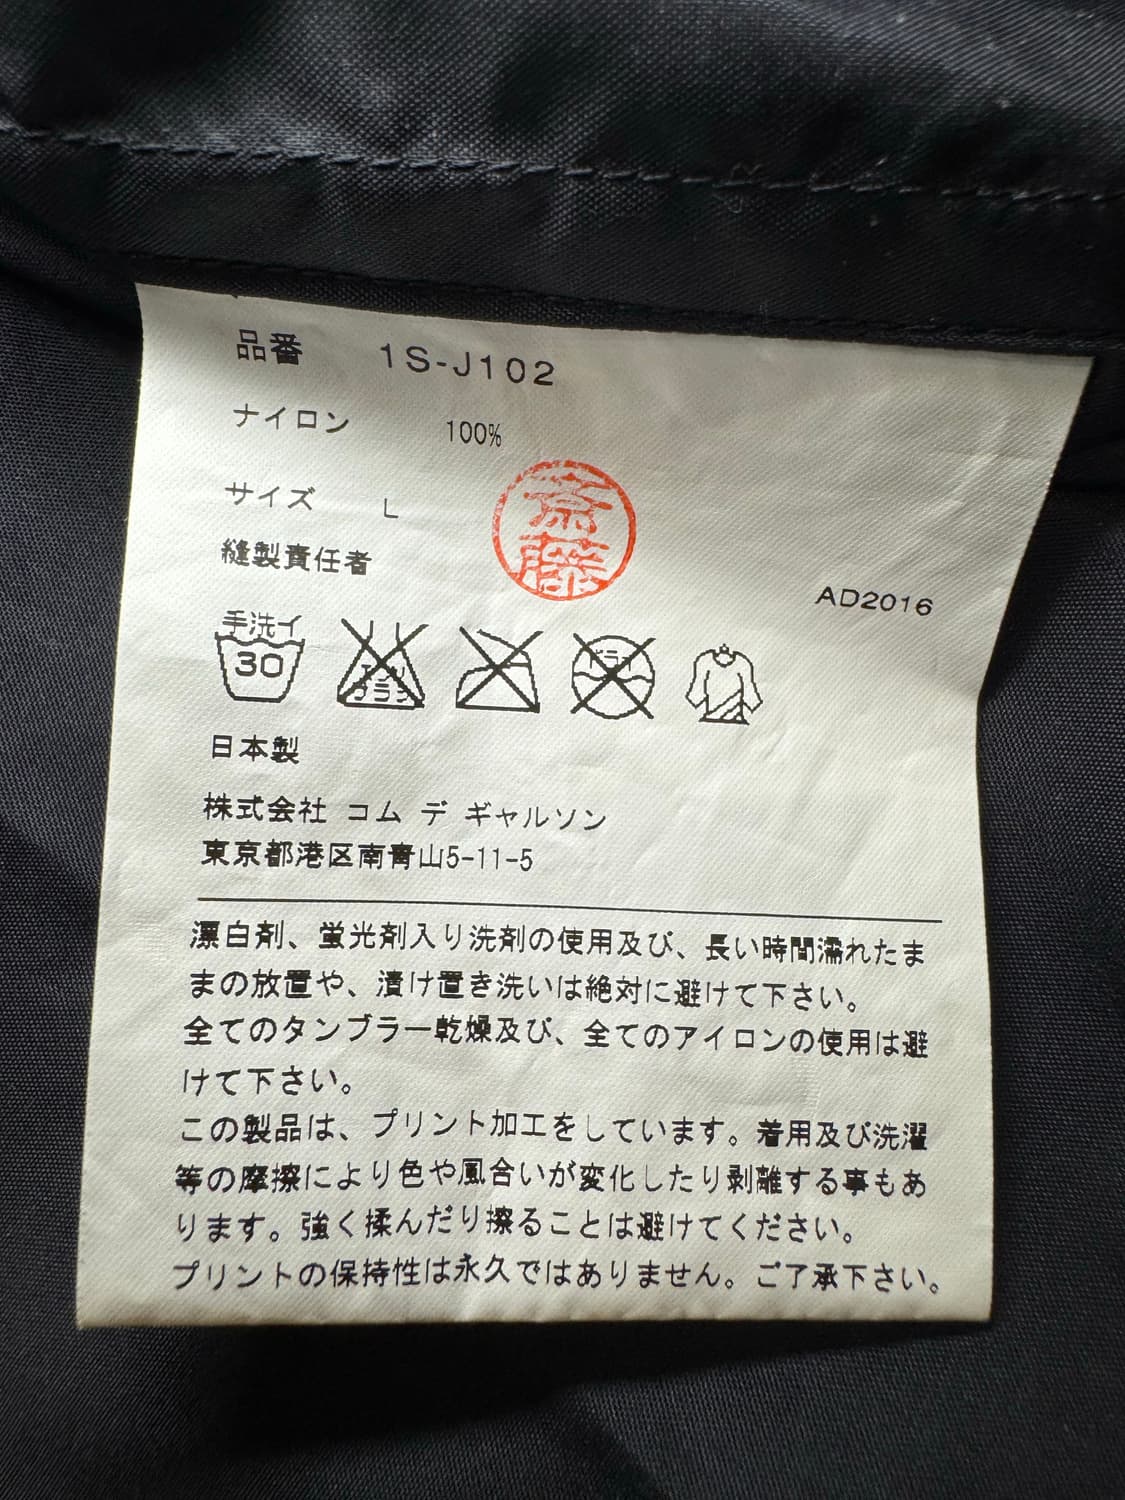 品番 1S-J102
ナイロン 100%
サイズ L
斎藤
縫製責任者
AD2016
手洗イ
30
エンソ
サラシ
ドライ
日本製
株式会社 コム デ ギャルソン
東京都港区南青山5-11-5
漂白剤、蛍光剤入り洗剤の使用及び、長い時間濡れたま
まの放置や、漬け置き洗いは絶対に避けて下さい。
全てのタンブラー乾燥及び、全てのアイロンの使用は避
けて下さい。
この製品は、プリント加工をしています。着用及び洗濯
等の摩擦により色や風合いが変化したり剥離する事もあ
ります。強く揉んだり擦ることは避けてください。
プリントの保持性は永久ではありません。ご了承下さい。